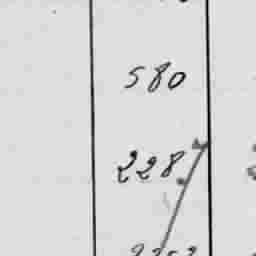 580
228